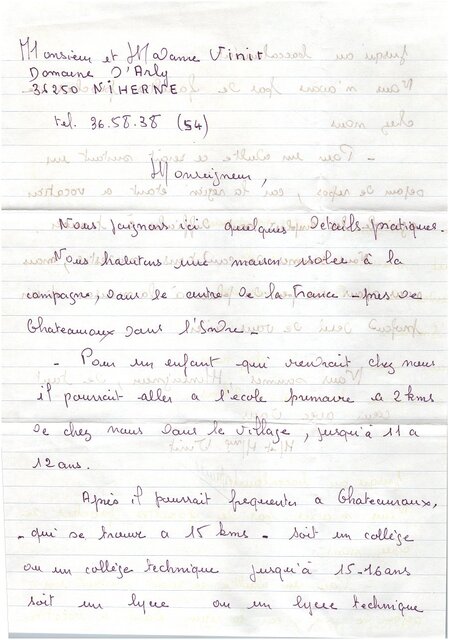 Monsieur et Madame Vinit
Domaine D'Arly
36250 NIHERNE
tel. 36.58.38 (54)
Monseigneur,
Nous joignons ici quelques details pratiques.
Nous habitons une maison isolee à la
campagne, dans le centre de la France - pres de
Chateauroux dans l'Indre -
- Pour un enfant qui viendrait chez nous
il pourrait aller a l'ecole primaire a 2 kms
de chez nous dans le village, jusqu'à 11 a
12 ans.
Après il pourrait frequenter a Chateauroux,
- qui se trouve a 15 kms - soit un collège
ou un collège technique jusqu'à 15-16 ans
soit un lycee ou un lycee technique